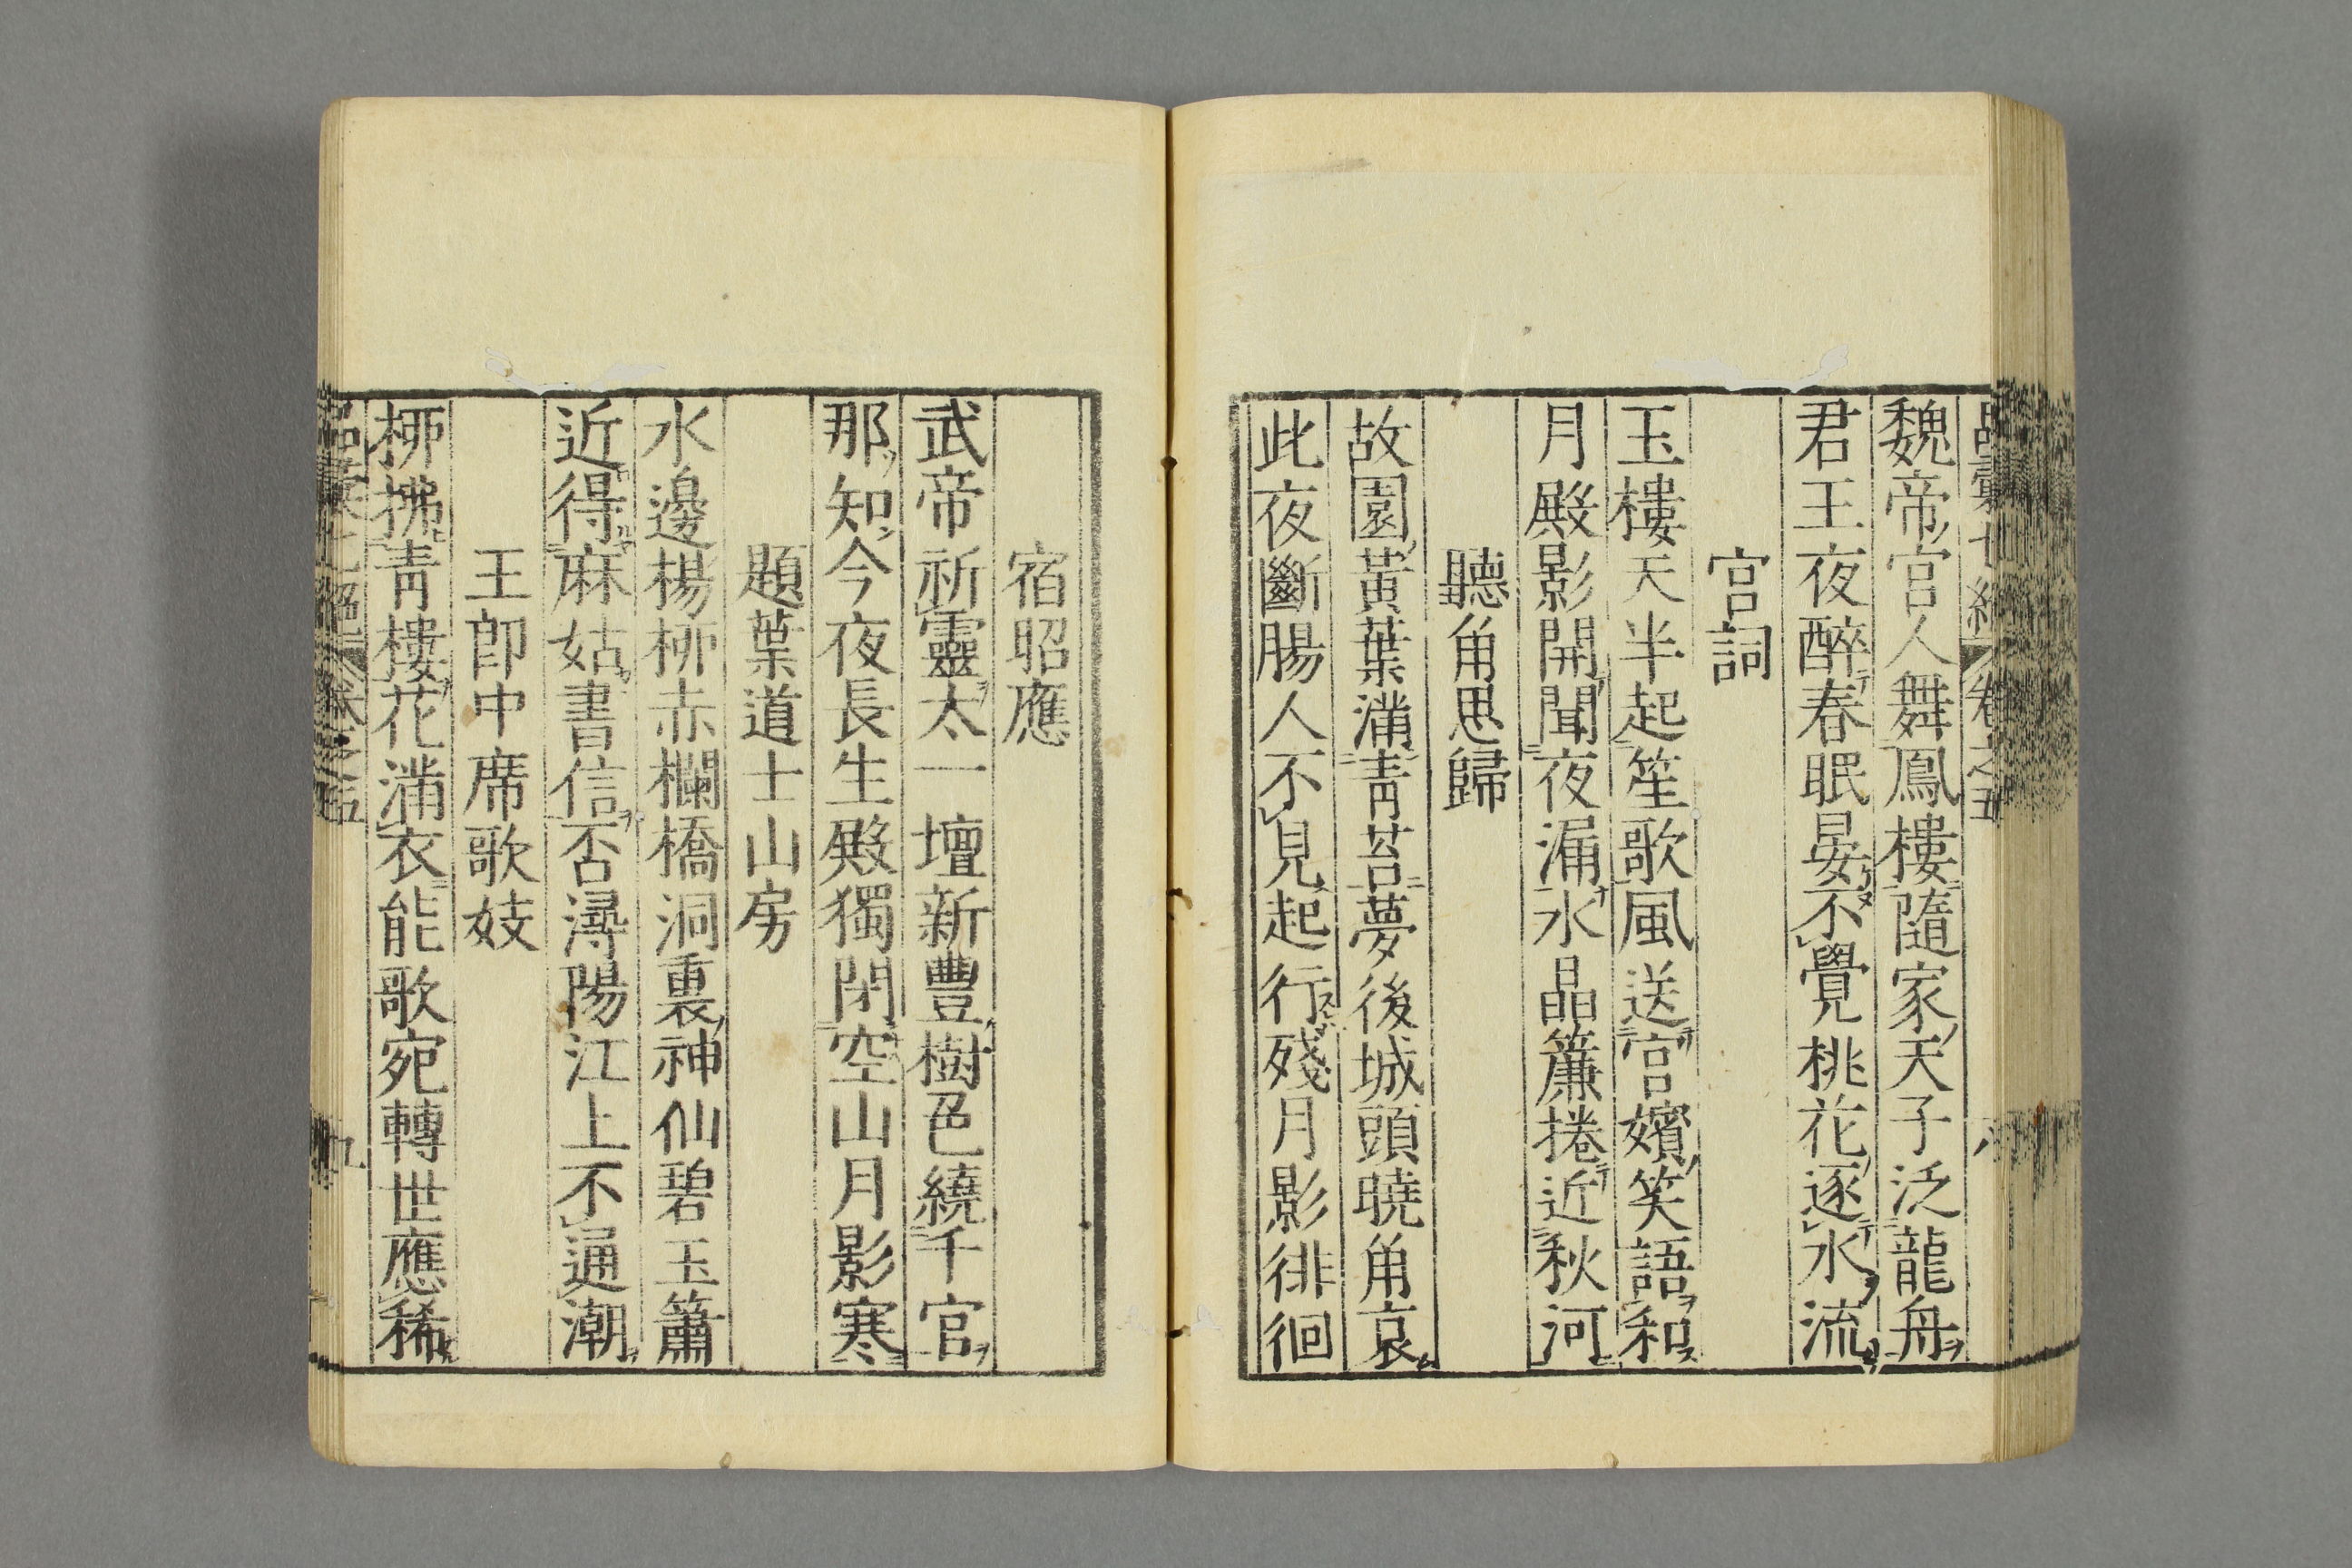 品彙七絶 卷之五 八
魏帝宮人舞鳳樓隨家天子泛龍舟
君王夜醉春眠晏不覺桃花逐水流
宮詞
玉樓天半起笙歌風送宮嬪笑語和
月殿影開聞夜漏水晶簾捲近秋河
聽角思歸
故園黃葉滿青苔夢後城頭曉角哀
此夜斷腸人不見起行殘月影徘徊
宿昭應
武帝祈靈太一壇新豐樹色繞千官
那知今夜長生殿獨閉空山月影寒
題葉道士山房
水邊楊柳赤欄橋洞裏神仙碧玉簫
近得麻姑書信否潯陽江上不通潮
王郎中席歌妓
柳拂青樓花滿衣能歌宛轉世應稀
品彙七絶 卷之五 九